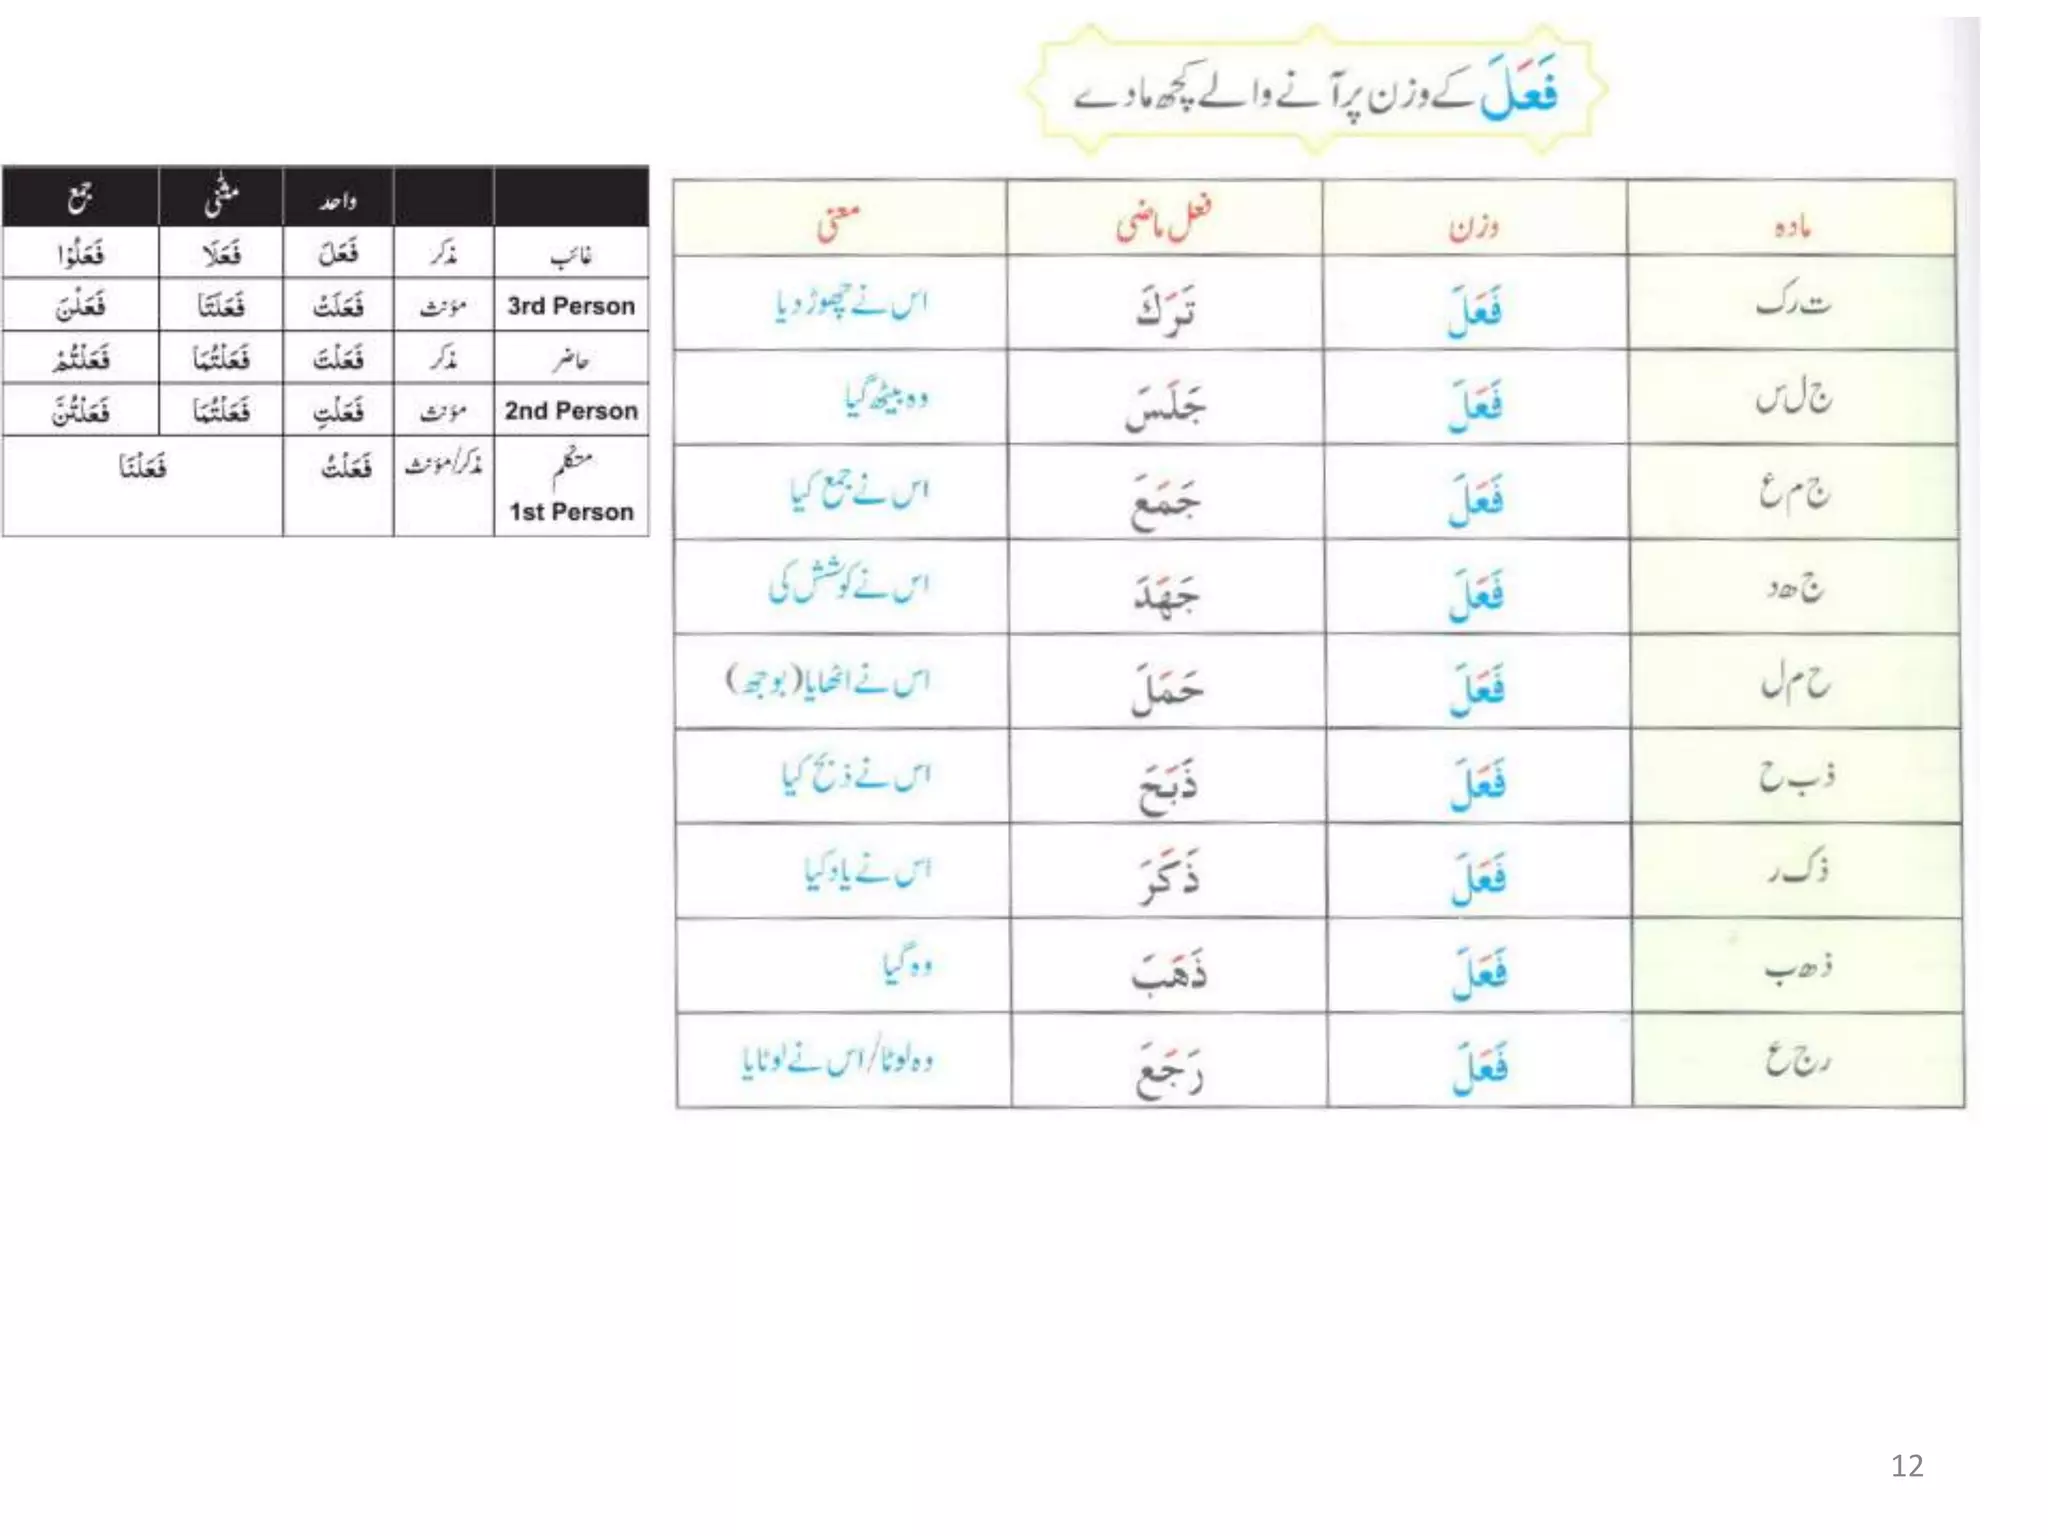 فَعَلَ کے وزن پر آنے والے کچھ مادے
مادہ وزن فعل ماضی معنی
ت ر ک فَعَلَ تَرَكَ اس نے چھوڑ دیا
ج ل س فَعَلَ جَلَسَ وہ بیٹھ گیا
ج م ع فَعَلَ جَمَعَ اس نے جمع کیا
ج ھ د فَعَلَ جَهَدَ اس نے کوشش کی
ح م ل فَعَلَ حَمَلَ اس نے اٹھایا (بوجھ)
ذ ب ح فَعَلَ ذَبَحَ اس نے ذبح کیا
ذ ک ر فَعَلَ ذَكَرَ اس نے یاد کیا
ذ ھ ب فَعَلَ ذَهَبَ وہ گیا
ر ج ع فَعَلَ رَجَعَ وہ لوٹا/اس نے لوٹایا
واحد مثنٰی جمع
غائب مذکر فَعَلَ فَعَلَا فَعَلُوْا
3rd Person مؤنث فَعَلَتْ فَعَلَتَا فَعَلْنَ
حاضر مذکر فَعَلْتَ فَعَلْتُمَا فَعَلْتُمْ
2nd Person مؤنث فَعَلْتِ فَعَلْتُمَا فَعَلْتُنَّ
متکلم مذکر/مؤنث فَعَلْتُ فَعَلْنَا
1st Person
12